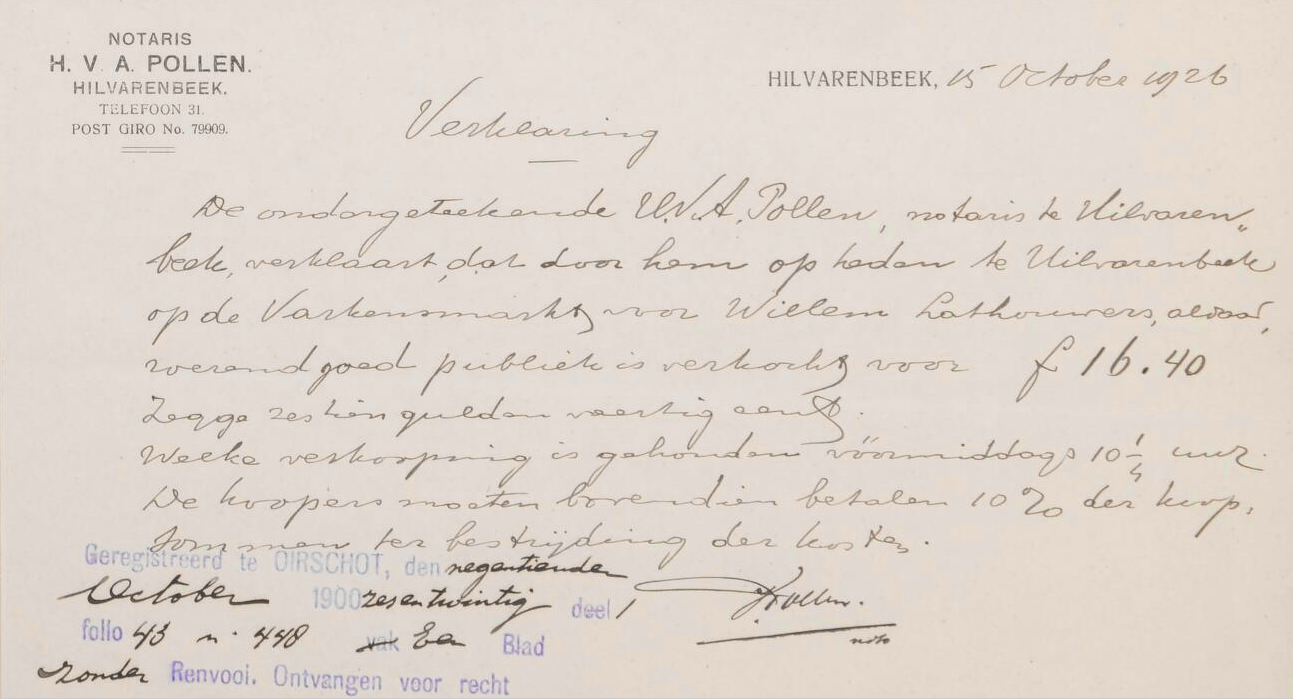 NOTARIS
H. V. A. POLLEN.
HILVARENBEEK.
TELEFOON 31.
POST GIRO No. 79909.
HILVARENBEEK, 15 October 1926
Verklaring
De ondergeteekende H.V.A. Pollen, notaris te Hilvaren„
beek, verklaart, dat door hem op heden te Hilvarenbeek
op de Varkensmarkt, voor Willem Lathouwers, aldaar,
roerend goed publiek is verkocht voor f 16.40
Zegge zestien gulden veertig cent.
Welke verkooping is gehouden vóórmiddags 10 1/4 uur.
De koopers moeten bovendien betalen 10% der koop,
sommen ter bestrijding der kosten.
Geregistreerd te OIRSCHOT, den negentienden
October 1900 zesentwintig deel 1
folio 43 n. 448 vak Een Blad
zonder Renvooi. Ontvangen voor recht
Pollen.
nots